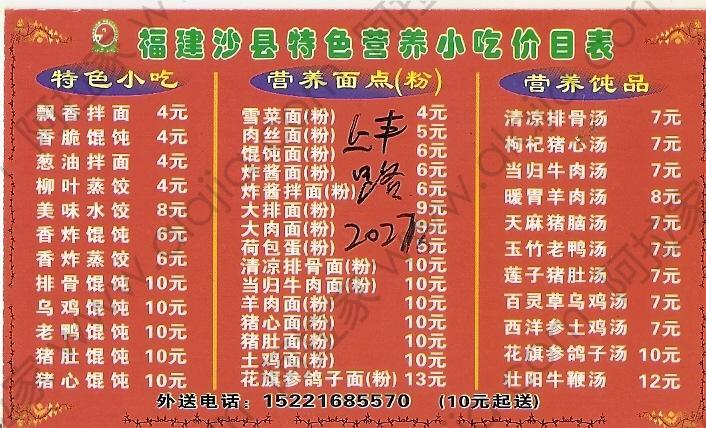 福建沙县特色营养小吃价目表
特色小吃
飘香拌面 4元
香脆馄饨 4元
葱油拌面 4元
柳叶蒸饺 4元
美味水饺 8元
香炸馄饨 6元
香炸蒸饺 6元
排骨馄饨 10元
乌鸡馄饨 10元
老鸭馄饨 10元
猪肚馄饨 10元
猪心馄饨 10元
营养面点(粉)
雪菜面(粉) 4元
肉丝面(粉) 5元
馄饨面(粉) 6元
炸酱面(粉) 6元
炸酱拌面(粉) 6元
大排面(粉) 9元
大肉面(粉) 9元
荷包蛋(粉) 6元
清凉排骨面(粉) 10元
当归牛肉面(粉) 10元
羊肉面(粉) 10元
猪心面(粉) 10元
猪肚面(粉) 10元
土鸡面(粉) 10元
花旗参鸽子面(粉) 13元
上丰
路
营养炖品
清凉排骨汤 7元
枸杞猪心汤 7元
当归牛肉汤 7元
暖胃羊肉汤 8元
天麻猪脑汤 7元
玉竹老鸭汤 7元
莲子猪肚汤 7元
百灵草乌鸡汤 7元
西洋参土鸡汤 7元
花旗参鸽子汤 10元
壮阳牛鞭汤 12元
外送电话：15221685570 (10元起送)